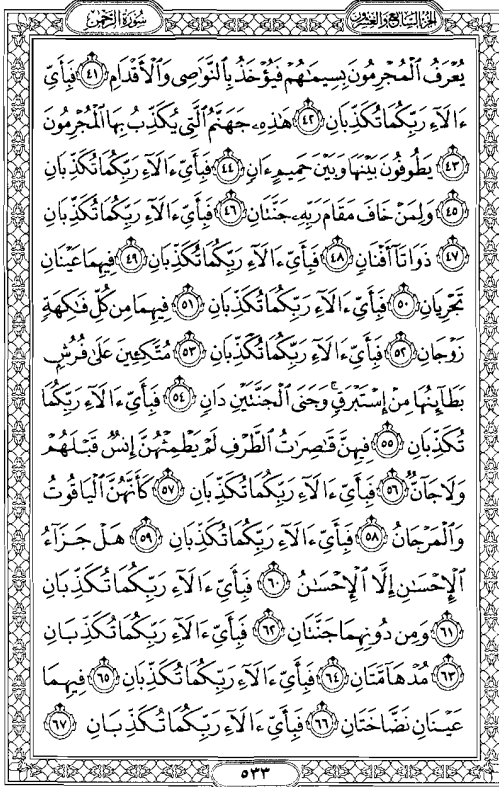 الجزء السابع والعشرون
سورة الرحمن
يُعْرَفُ ٱلْمُجْرِمُونَ بِسِيمَٰهُمْ فَيُؤْخَذُ بِٱلنَّوَٰصِى وَٱلْأَقْدَامِ ٤١ فَبِأَيِّ
ءَالَآءِ رَبِّكُمَا تُكَذِّبَانِ ٤٢ هَٰذِهِۦ جَهَنَّمُ ٱلَّتِى يُكَذِّبُ بِهَا ٱلْمُجْرِمُونَ
٤٣ يَطُوفُونَ بَيْنَهَا وَبَيْنَ حَمِيمٍ ءَانٍ ٤٤ فَبِأَيِّ ءَالَآءِ رَبِّكُمَا تُكَذِّبَانِ
٤٥ وَلِمَنْ خَافَ مَقَامَ رَبِّهِۦ جَنَّتَانِ ٤٦ فَبِأَيِّ ءَالَآءِ رَبِّكُمَا تُكَذِّبَانِ
٤٧ ذَوَاتَآ أَفْنَانٍ ٤٨ فَبِأَيِّ ءَالَآءِ رَبِّكُمَا تُكَذِّبَانِ ٤٩ فِيهِمَا عَيْنَانِ
تَجْرِيَانِ ٥٠ فَبِأَيِّ ءَالَآءِ رَبِّكُمَا تُكَذِّبَانِ ٥١ فِيهِمَا مِن كُلِّ فَٰكِهَةٍ
زَوْجَانِ ٥٢ فَبِأَيِّ ءَالَآءِ رَبِّكُمَا تُكَذِّبَانِ ٥٣ مُتَّكِـِٔينَ عَلَىٰ فُرُشٍۭ
بَطَآئِنُهَا مِنْ إِسْتَبْرَقٍ ۚ وَجَنَى ٱلْجَنَّتَيْنِ دَانٍ ٥٤ فَبِأَيِّ ءَالَآءِ رَبِّكُمَا
تُكَذِّبَانِ ٥٥ فِيهِنَّ قَٰصِرَٰتُ ٱلطَّرْفِ لَمْ يَطْمِثْهُنَّ إِنسٌ قَبْلَهُمْ
وَلَا جَآنٌّ ٥٦ فَبِأَيِّ ءَالَآءِ رَبِّكُمَا تُكَذِّبَانِ ٥٧ كَأَنَّهُنَّ ٱلْيَاقُوتُ
وَٱلْمَرْجَانُ ٥٨ فَبِأَيِّ ءَالَآءِ رَبِّكُمَا تُكَذِّبَانِ ٥٩ هَلْ جَزَآءُ
ٱلْإِحْسَٰنِ إِلَّا ٱلْإِحْسَٰنُ ٦٠ فَبِأَيِّ ءَالَآءِ رَبِّكُمَا تُكَذِّبَانِ
٦١ وَمِن دُونِهِمَا جَنَّتَانِ ٦٢ فَبِأَيِّ ءَالَآءِ رَبِّكُمَا تُكَذِّبَانِ
٦٣ مُدْهَآمَّتَانِ ٦٤ فَبِأَيِّ ءَالَآءِ رَبِّكُمَا تُكَذِّبَانِ ٦٥ فِيهِمَا
عَيْنَانِ نَضَّاخَتَانِ ٦٦ فَبِأَيِّ ءَالَآءِ رَبِّكُمَا تُكَذِّبَانِ ٦٧
٥٣٣